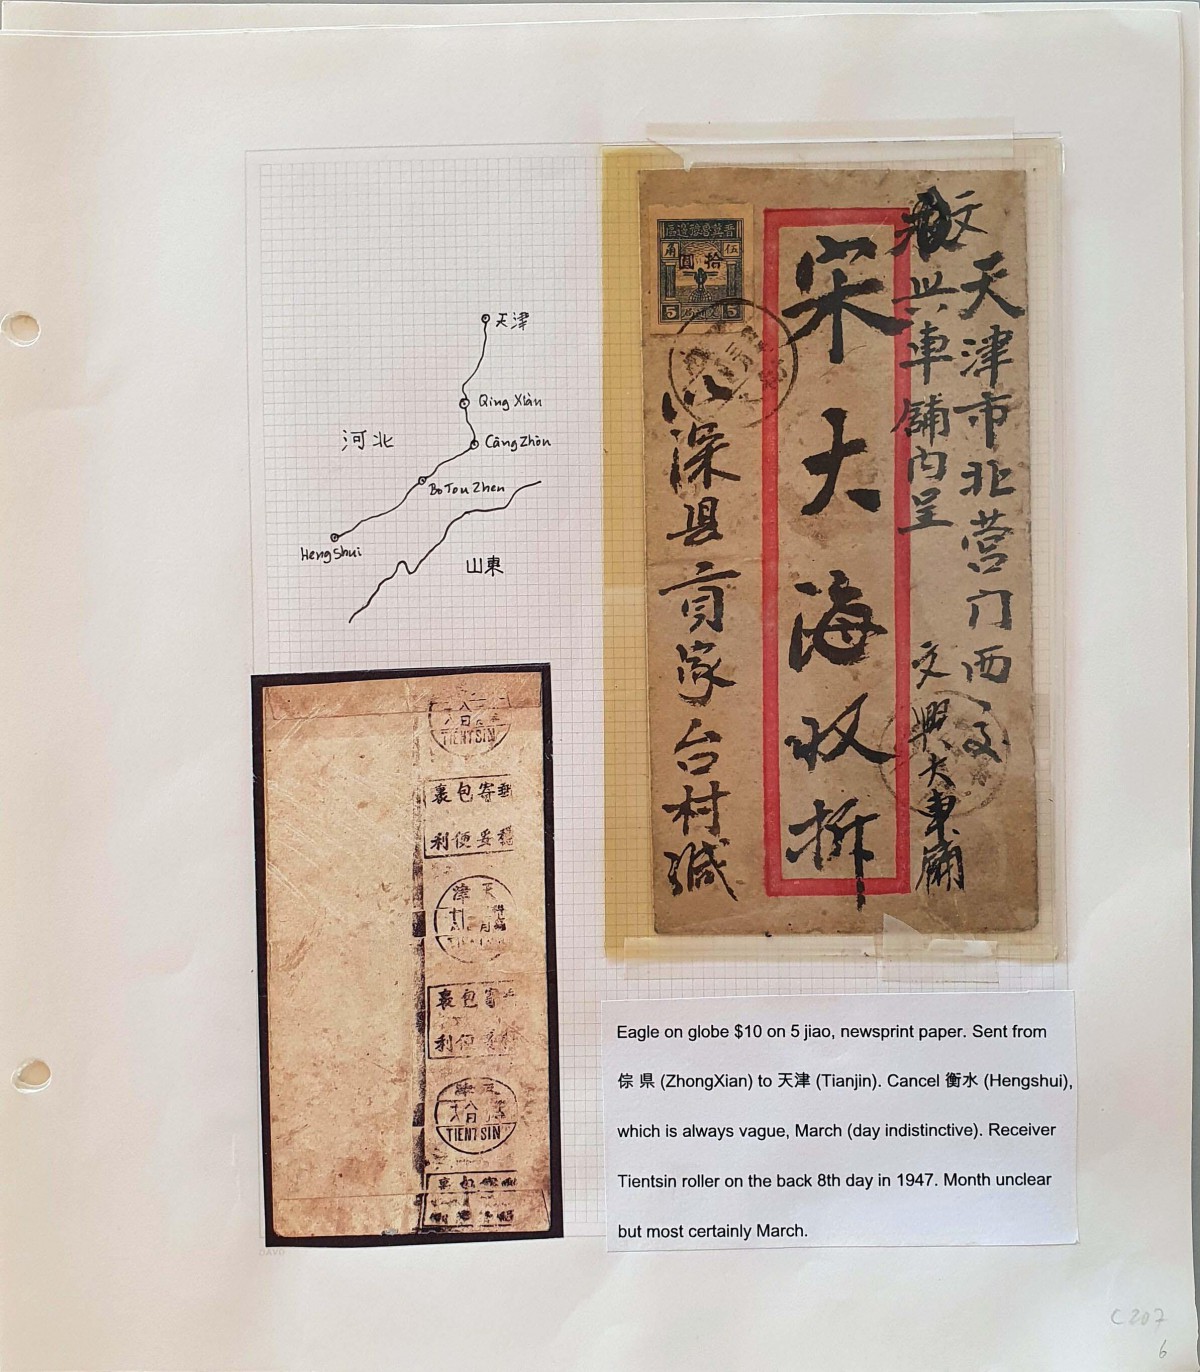 天津
Qing Xiàn
河北
CângZhòn
BoTouZhen
HengShui
山東
晋冀魯豫邊區
角 伍
圓拾
5 5
天津市北营门西
兴車铺内呈
文興大車廟
宋大海收拆
深县貢家台村緘
八
日
TIENTSIN
裹包寄郵
利便妥穩
津 天
月
裹包寄
利便妥
日
TIENTSIN
裹包
Eagle on globe $10 on 5 jiao, newsprint paper. Sent from
倧 県 (ZhongXian) to 天津 (Tianjin). Cancel 衡水 (Hengshui),
which is always vague, March (day indistinctive). Receiver
Tientsin roller on the back 8th day in 1947. Month unclear
but most certainly March.
DAVO
C207
6